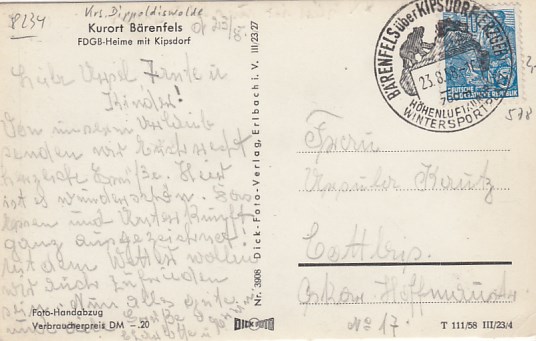 8234 Krs. Dippoldiswalde
Kurort Bärenfels
FDGB-Heime mit Kipsdorf
Liebe Tante u
Kinder!
Von unserm Urlaub
senden wir Euch recht
herzliche Grüße. Hier
ist es wunderschön. Das
Essen und Unterkunft
ganz ausgezeichnet.
Mit dem Wetter wollen
wir auch zufrieden
sein. Nun alles Gute
und
Foto-Handabzug
Verbraucherpreis DM -.20
Nr. 3908 Dick-Foto-Verlag, Erlbach i. V. III/23/27
DICK FOTO
BÄRENFELS über KIPSDORF
23.8.
HÖHENLUFT
WINTERSPORT
DEUTSCHE
DEMOKRATISCHE REPUBLIK
578
Frau
Ursula Kautz
Cottbus
Oskar
No 17.
T 111/58 III/23/4